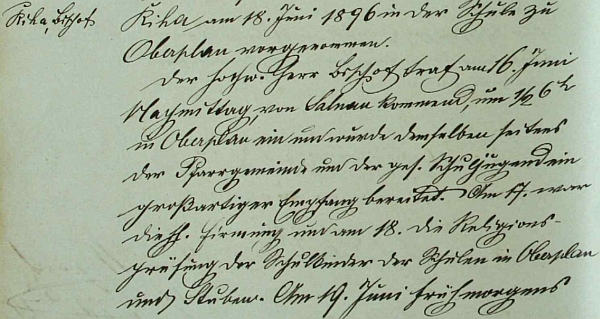 Řiha, Bischof
Řiha am 18. Juni 1896 in der Schule zu
Oberplan vorgenommen.
Der hochw. Herr Bischof traf am 16. Juni
Nachmittag, von Salnau kommend, um 1/2 6 h
in Oberplan ein und wurde demselben seitens
der Pfarrgemeinde und der ges. Schuljugend ein
großartiger Empfang bereitet. Am 17. war
die hl. Firmung und am 18. die Religions-
prüfung der Schulkinder der Schulen in Oberplan
und Stuben. Am 19. Juni frühmorgens